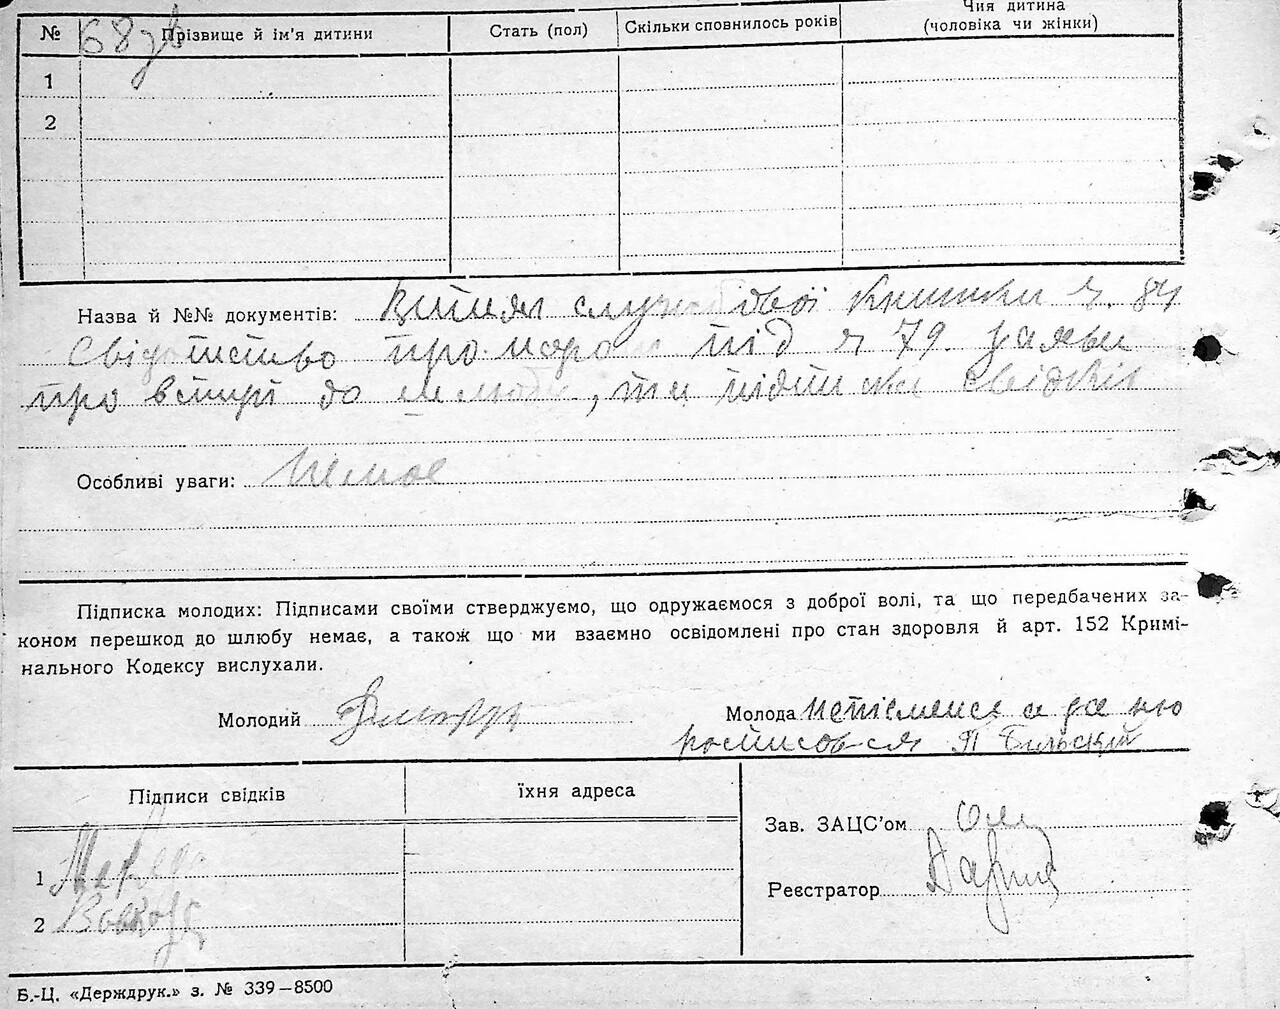 68 зв
№ Прізвище й ім'я дитини Стать (пол) Скільки сповнилось років Чия дитина (чоловіка чи жінки)
1
2
Назва й №№ документів: Витяг службової книжки ч. 84
Свідотство про народ під ч 79 заяви
про вступ до шлюбу, та підписки свідків
Особливі уваги: Немає
Підписка молодих: Підписами своїми стверджуємо, що одружаємося з доброї волі, та що передбачених за-
коном перешкод до шлюбу немає, а також що ми взаємно освідомлені про стан здоровля й арт. 152 Кримі-
нального Кодексу вислухали.
Молодий Молода неписменна а за нею
росписов-ся П Більский
Підписи свідків їхня адреса
Зав. ЗАЦС'ом
1
Реєстратор
2
Б.-Ц. «Держдрук.» з. № 339—8500